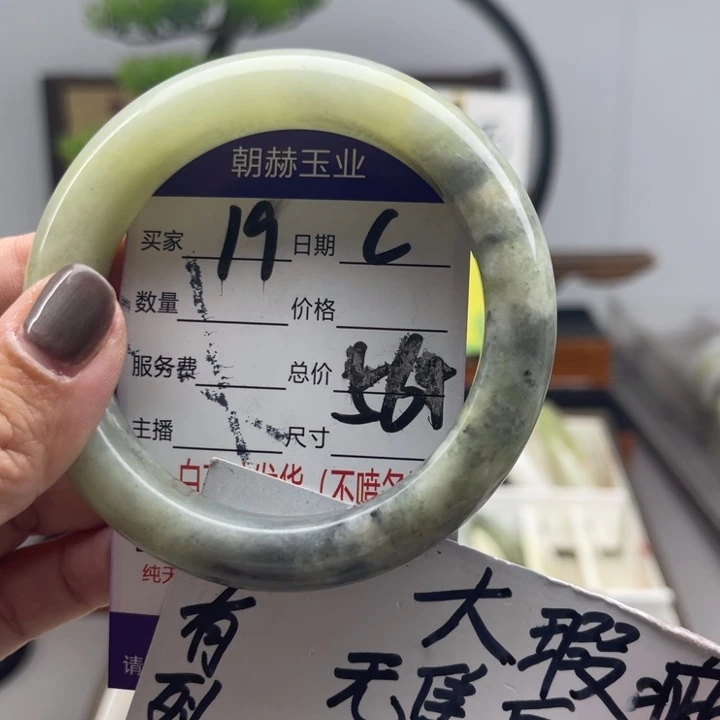 朝赫玉业
买家 19 日期 C
数量 价格
服务费 总价
主播 尺寸
发货（不喷
纯天
请
有 大 瑕疵
列 无